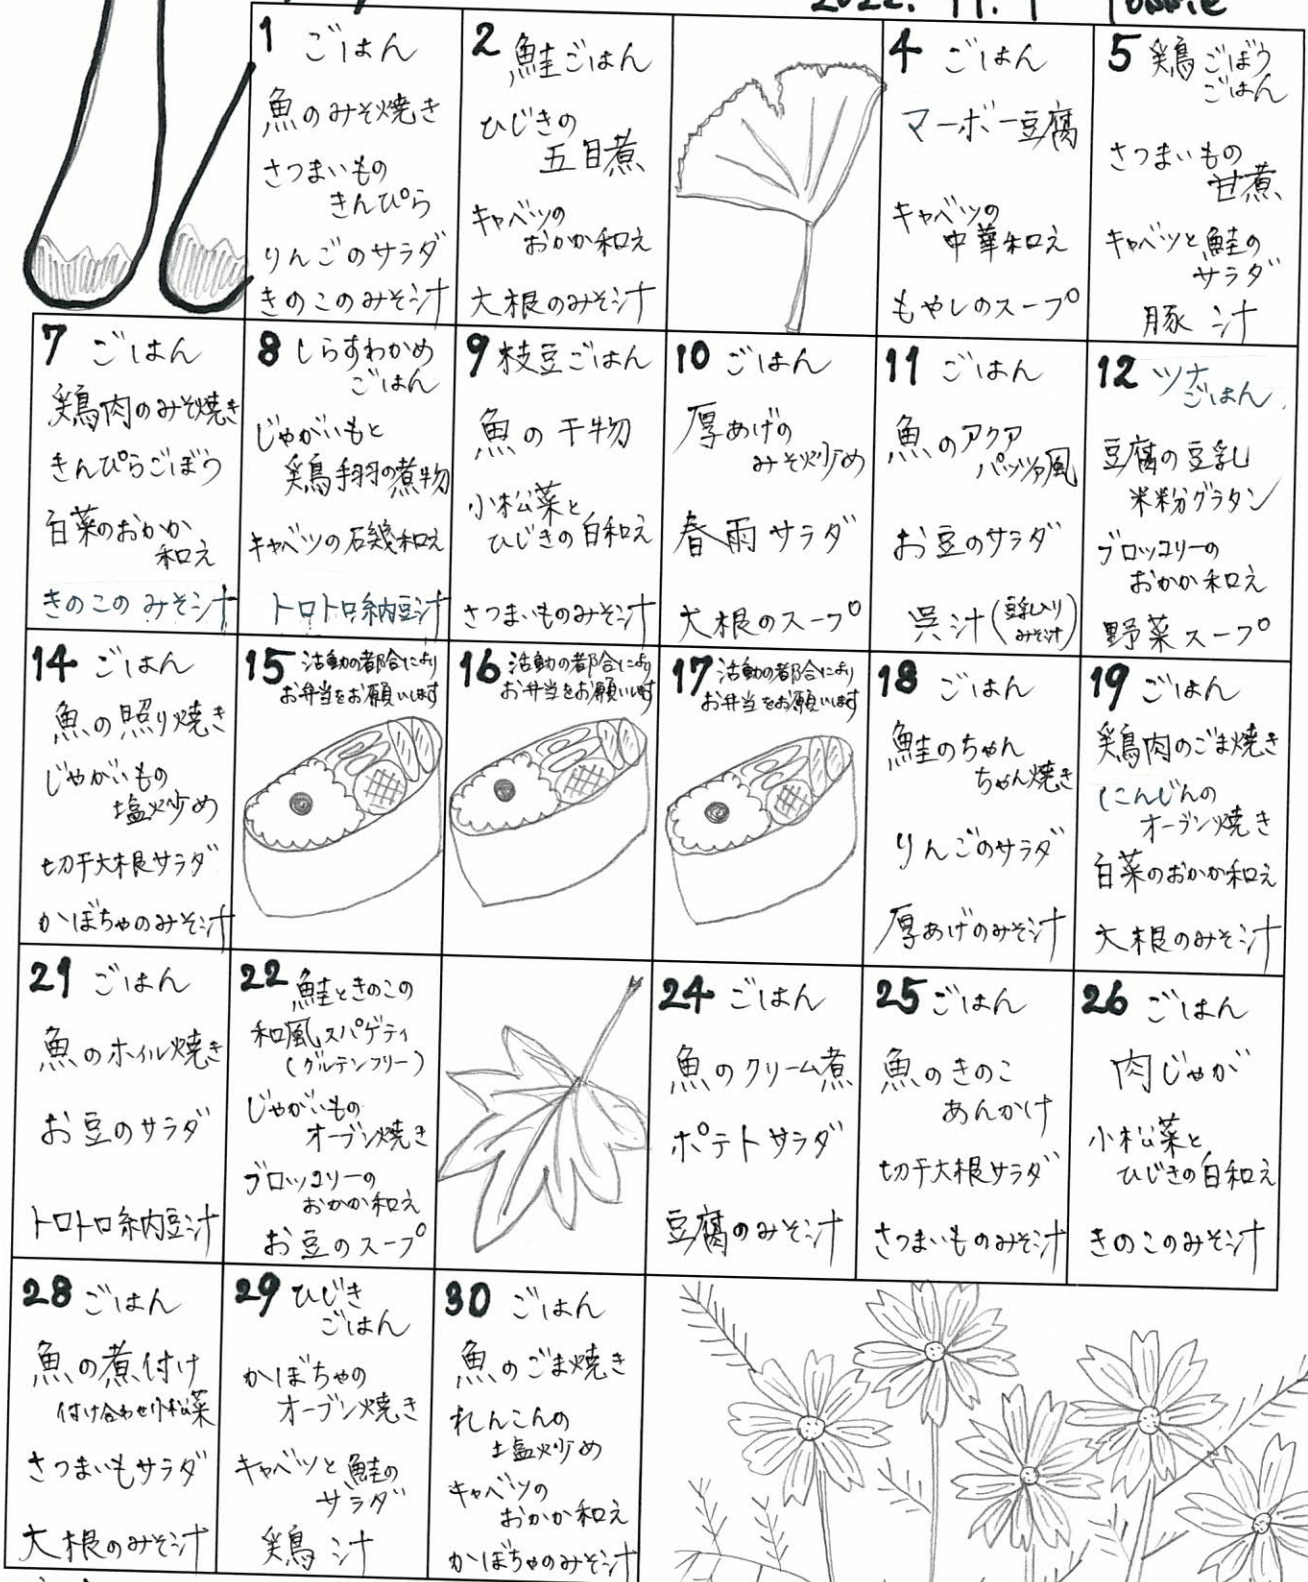 2022. 11. 1
1 ごはん
魚のみそ焼き
さつまいもの
きんぴら
りんごのサラダ
きのこのみそ汁
2 鮭ごはん
ひじきの
五目煮
キャベツの
おかか和え
大根のみそ汁
4 ごはん
マーボー豆腐
キャベツの
中華和え
もやしのスープ
5 鶏ごぼう
ごはん
さつまいもの
甘煮
キャベツと鮭の
サラダ
豚汁
7 ごはん
鶏肉のみそ焼き
きんぴらごぼう
白菜のおかか
和え
きのこのみそ汁
8 しらすわかめ
ごはん
じゃがいもと
鶏手羽の煮物
キャベツの石幾和え
トロトロ納豆汁
9 枝豆ごはん
魚の干物
小松菜と
ひじきの白和え
さつまいものみそ汁
10 ごはん
厚あげの
みそ炒め
春雨サラダ
大根のスープ
11 ごはん
魚のアクア
パッツァ風
お豆のサラダ
呉汁(豆乳入り
みそ汁)
12 ツナ
ごはん
豆腐の豆乳
米粉グラタン
ブロッコリーの
おかか和え
野菜スープ
14 ごはん
魚の照り焼き
じゃがいもの
塩炒め
切干大根サラダ
かぼちゃのみそ汁
15 活動の都合により
お弁当をお願いします
16 活動の都合により
お弁当をお願いします
17 活動の都合により
お弁当をお願いします
18 ごはん
鮭のちゃん
ちゃん焼き
りんごのサラダ
厚あげのみそ汁
19 ごはん
鶏肉のごま焼き
にんじんの
オーブン焼き
白菜のおかか和え
大根のみそ汁
21 ごはん
魚のホイル焼き
お豆のサラダ
トロトロ納豆汁
22 鮭ときのこの
和風スパゲティ
(グルテンフリー)
じゃがいもの
オーブン焼き
ブロッコリーの
おかか和え
お豆のスープ
24 ごはん
魚のクリーム煮
ポテトサラダ
豆腐のみそ汁
25 ごはん
魚のきのこ
あんかけ
切干大根サラダ
さつまいものみそ汁
26 ごはん
肉じゃが
小松菜と
ひじきの白和え
きのこのみそ汁
28 ごはん
魚の煮付け
付け合わせ小松菜
さつまいもサラダ
大根のみそ汁
29 ひじき
ごはん
かぼちゃの
オーブン焼き
キャベツと鮭の
サラダ
鶏汁
30 ごはん
魚のごま焼き
れんこんの
塩炒め
キャベツの
おかか和え
かぼちゃのみそ汁